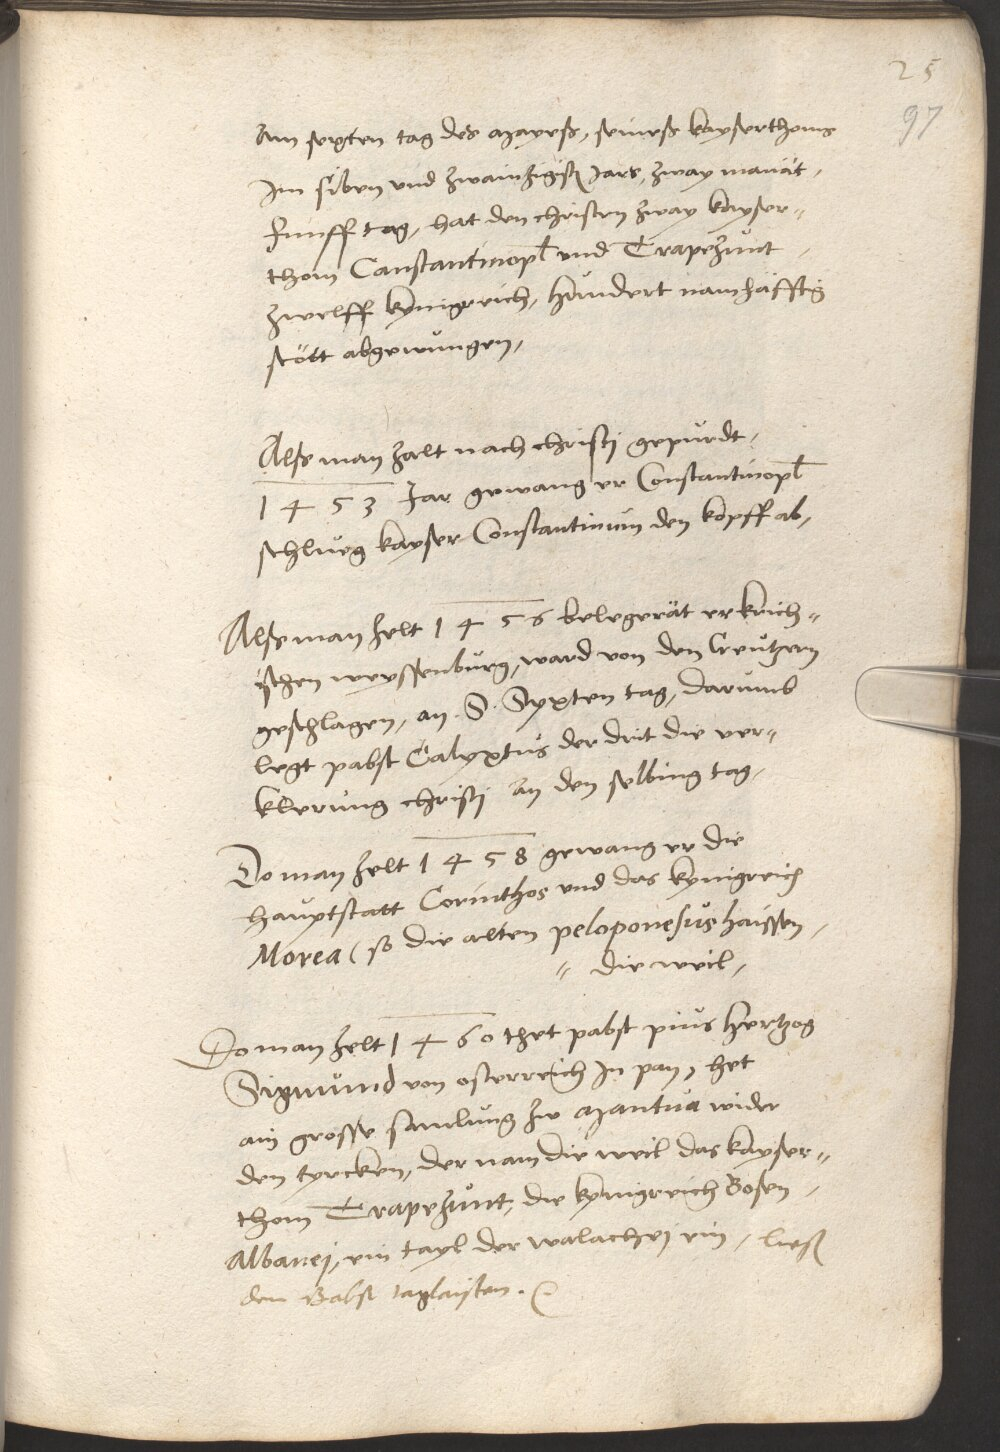 25
97
Am sexten tag des Mayenß, seineß kayserthoms
Im siben und zwaintzigisten Jars, zway manät,
Funff tag, hat den christen zway kayser-
thom Constantinopl und Trapezunt,
zwelff kynigreich, hundert namhäfftig
stött abgewungen,
Alß man zalt nach christi gepurdt,
1453 Jar gewang er Constantinopl
schlueg kayser Constantinum den kopff ab,
Alß man zelt 1456 belegerät er krich-
ischen weyssenburg, ward von den Creutzern
geschlagen, an. S. Sixten tag, darumb
legt pabst Calyxtus der drit die ver-
klerung christi an den selbing tag,
Do man zelt 1458 gewang er die
hauptstatt Corinthos und das kynigreich
Morea (so die alten peloponesus haissen,
die weil,
Do man zelt 1460 thet pabst pius Hertzog
Sigmund von osterreich In pan, het
ain grosse samlung zw Mantua wider
den tyrcken, der nam die weil das kayser-
thom Trapezunt, die kynigreich Bosen,
Albanej, ein tayl der walachej ein, ließ
den Babst taglaisten.